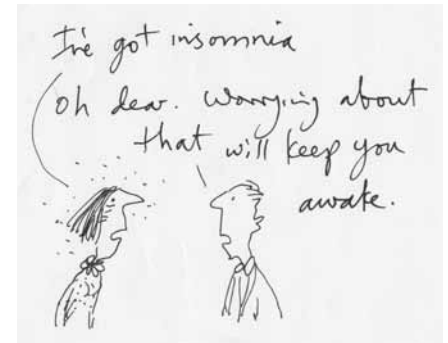 I've got insomnia
oh dear. Worrying about
that will keep you
awake.